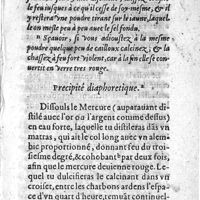 de feu jusques à ce qu'il cesse de soy-mesme, & il
y restera vne poudre tirant sur le iaune, laquel-
le on mesle peu à peu auec le sel fondu.
Sçauoir, si vous adioustez à la mesme
poudre quelque peu de cailloux calcinez, & la
chassez à feu fort violent, car à la fin elle se con-
uertit en verre tres-rouge.
Precipité diaphoretique.
Dissouls le Mercure (auparauant di-
stilé auec l'or ou l'argent comme dessus)
en eau forte, laquelle tu distileras dãs vn
matras, qui ait le col long auec vn alem-
bic proportionné, donnant feu du troi-
siesme degré, & cohobant par deux fois,
afin que le mercure deuienne rouge. Le-
quel tu dulcifieras le calcinant dans vn
croiset, entre les charbons ardens l'espa-
ce d'vn quart d'heure, remuãt continuel-